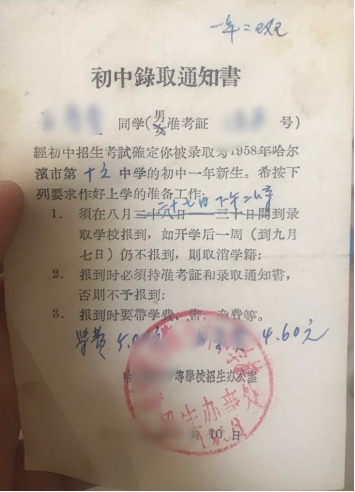 一年二班
初中錄取通知書
同学(男女准考証 号)
經初中招生考試確定你被录取为1958年哈尔
濱市第十五中学的初中一年新生。希按下
列要求作好上学的准备工作:
1. 須在八月二十八日——三十日間到录
二十七日下午二時
取学校报到,如开学后一周(到九月
七日)仍不报到,則取消学籍;
2. 报到时必须持准考証和录取通知書,
否則不予报到;
3. 报到时要带学費、書、杂費等。
学費5.0 4.60元
等學校招生办公室
月10日